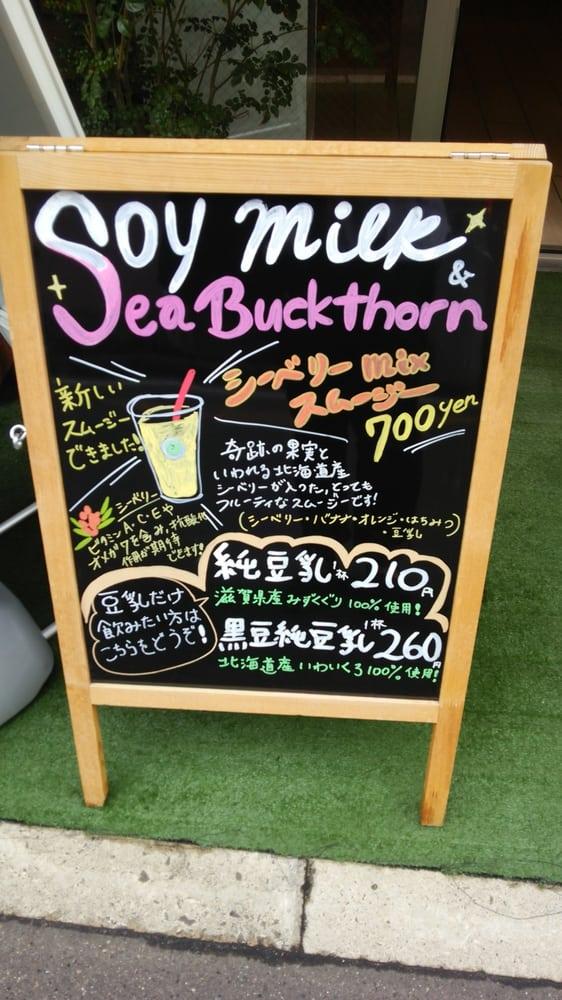 Soy milk
&
Sea Buckthorn
新しい
スムージー
できました!
シーベリー mix
スムージー
700yen
奇跡の果実と
いわれる北海道産
シーベリーが入った、とっても
フルーティなスムージーです!
(シーベリー・バナナ・オレンジ・はちみつ)
・豆乳
シーベリー
ビタミンA・C・Eや
オメガ7を含み、抗酸化
作用が期待
できます!
豆乳だけ
飲みたい方は
こちらをどうぞ!
純豆乳 1杯 210円
滋賀県産みずくぐり100%使用!
黒豆純豆乳 1杯 260円
北海道産いわいくろ100%使用!